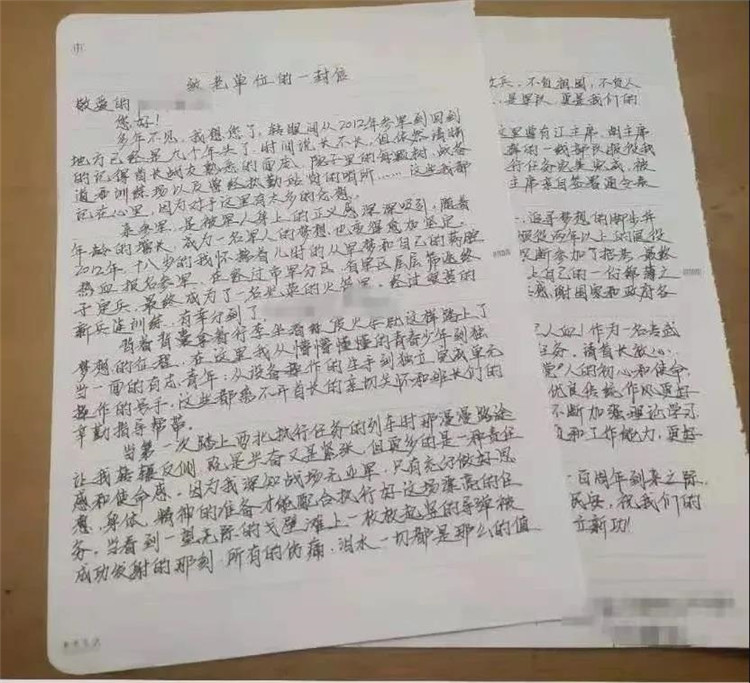 给老单位的一封信
敬爱的
您好!
多年不见,我想您了,转眼间从2012年参军到回到
地方已经是几个年头了,时间说长不长,但依然清晰
的记得首长战友熟悉的面庞、院子里的每颗树、战备
道西训练场以及曾经执勤站岗的哨所……这些我都
记在心里,因为对于这里有太多的念想。
来参军,是被军人身上的正义感深深吸引,随着
年龄的增长,成为一名军人的梦想也变得愈加坚定。
2012年,十八岁的我怀揣着儿时的从军梦和自己的满腔
热血报名参军,在经过市军分区、省军区层层筛选终
于定兵,最终成为了一名光荣的火箭军。经过艰苦的
新兵连训练,有幸分到了
背着背囊拿着行李坐着绿皮火车就这样踏上了
梦想的征程,在这里我从懵懵懂懂的青春少年到独
当一面的有志青年,从设备操作的生手到独立完成单元
操作的号手,这些都离不开首长的亲切关怀和班长们的
辛勤指导帮带。
当第一次踏上西北执行任务的列车时那漫漫路途
让我辗转反侧,既是兴奋又是紧张,但更多的是一种责任
感和使命感,因为我深知战场无亚军,只有充分做好思
想、身体、精神的准备才能配合执行好这场漂亮的任
务,当看到一望无际的戈壁滩上一枚枚起竖的导弹被
成功发射的那刻,所有的伤痛、泪水一切都是那么的值
兵,不负祖国,不负人
是军队,更是我们的
这里曾有江主席、胡主席
的一线部队服役我
行任务完美完成,被
主席亲自签署通令表
追寻梦想的脚步并
服役两年以上的退役
果断参加了招录,最终
上自己的一份绵薄之
感谢国家和政府各
军人血”作为一名老兵
任务,请首长放心,
军”人的初心和使命,
优良传统作风更好
不断加强理论学习
负和工作能力,更好
百周年到来之际
民安,祝我们的
立新功!